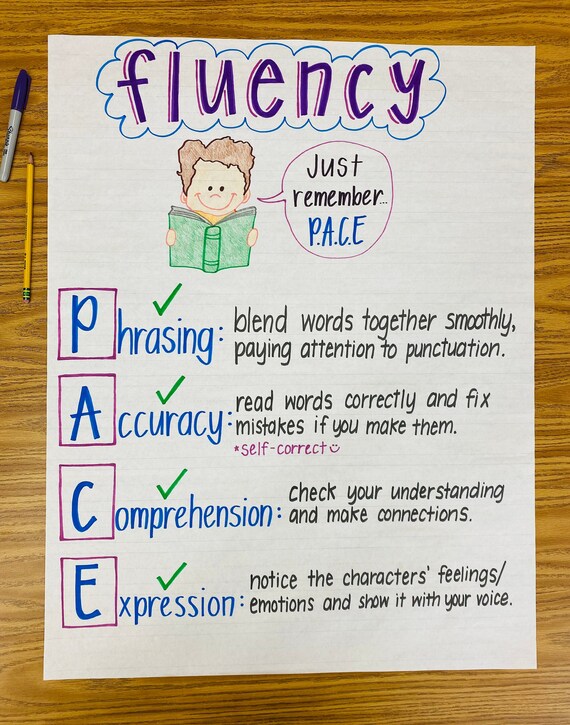 fluency
Just
remember...
P.A.C.E
Phrasing: blend words together smoothly,
paying attention to punctuation.
Accuracy: read words correctly and fix
mistakes if you make them.
*self-correct
Comprehension: check your understanding
and make connections.
Expression: notice the characters' feelings/
emotions and show it with your voice.
Sharpie